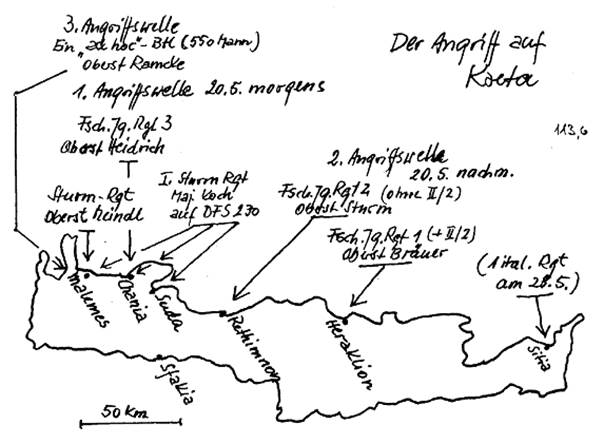 3. Angriffswelle
Ein "ad hoc"-Btl (550 Mann)
Oberst Ramcke
Der Angriff auf
Kreta
1. Angriffswelle 20.5. morgens
Fsch. Jg. Rgt 3
Oberst Heidrich
113,6
2. Angriffswelle
20.5. nachm.
Sturm-Rgt
Oberst Meindl
I. Sturm Rgt
Maj Koch
auf DFS 230
Fsch. Jg. Rgt 2 (ohne II/2)
Oberst Sturm
Fsch. Jg. Rgt 1 (+ II/2)
Oberst Bräuer
(1 ital. Rgt
am 28.5.)
Malemes
Chania
Suda
Rethimnon
Heraklion
Sitia
Sfakia
50 Km